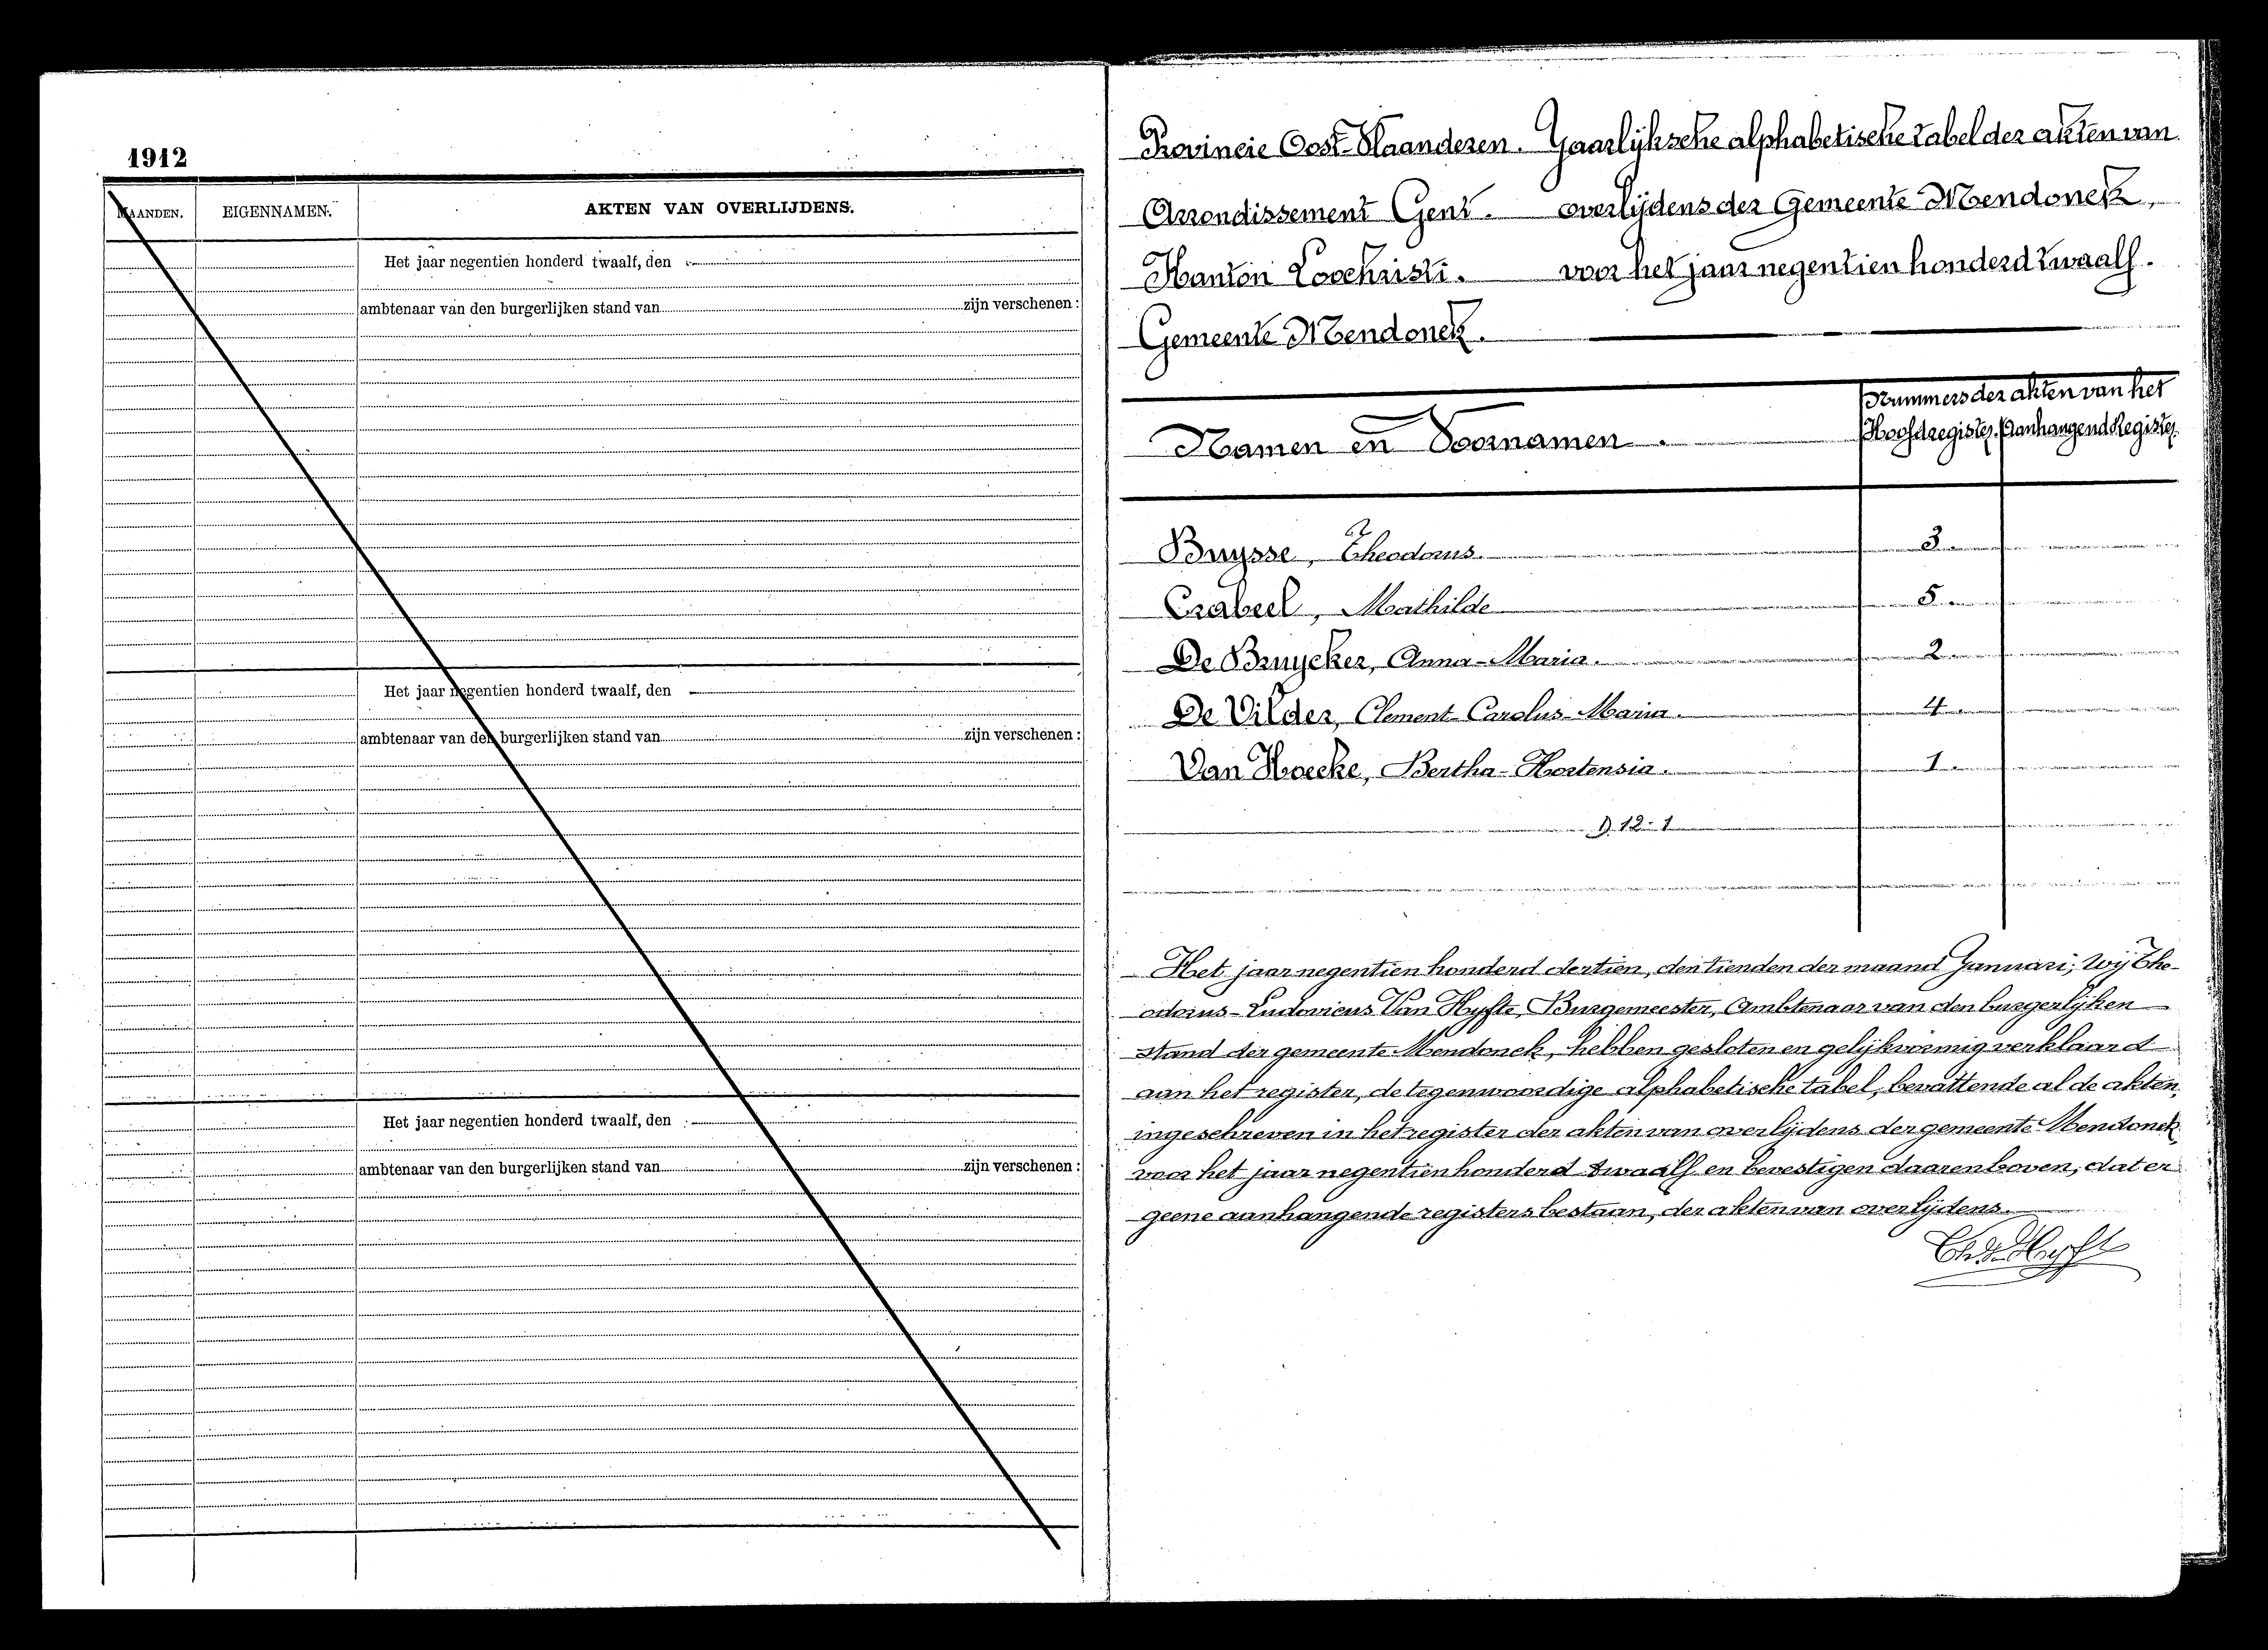 1912
MAANDEN.
EIGENNAMEN.
AKTEN VAN OVERLIJDENS.
Het jaar negentien honderd twaalf, den
ambtenaar van den burgerlijken stand van zijn verschenen :
Het jaar negentien honderd twaalf, den
ambtenaar van den burgerlijken stand van zijn verschenen :
Het jaar negentien honderd twaalf, den
ambtenaar van den burgerlijken stand van zijn verschenen :
Provincie Oost-Vlaanderen. Jaarlijksche alphabetische tabel der akten van
Arrondissement Gent. overlijdens der Gemeente Mendonck,
Kanton Loochristi. voor het jaar negentien honderd twaalf.
Gemeente Mendonck.
Nummers der akten van het
Namen en Voornamen. Hoofdregister. Aanhangend Register.
Buysse, Theodorus. 3.
Crabeel, Mathilde 5.
De Bruycker, Anna-Maria. 2.
De Vilder, Clement-Carolus-Maria. 4.
Van Hoecke, Bertha-Hortensia. 1.
D. 12-1
Het jaar negentien honderd dertien, den tienden der maand Januari; Wij The-
odorus-Ludovicus Van Hyfte, Burgemeester, Ambtenaar van den burgerlijken
stand der gemeente Mendonck, hebben gesloten en gelijkvormig verklaard
aan het register, de tegenwoordige alphabetische tabel, bevattende al de akten,
ingeschreven in het register der akten van overlijdens der gemeente Mendonck
voor het jaar negentien honderd twaalf en bevestigen daarenboven, dat er
geene aanhangende registers bestaan, der akten van overlijdens.